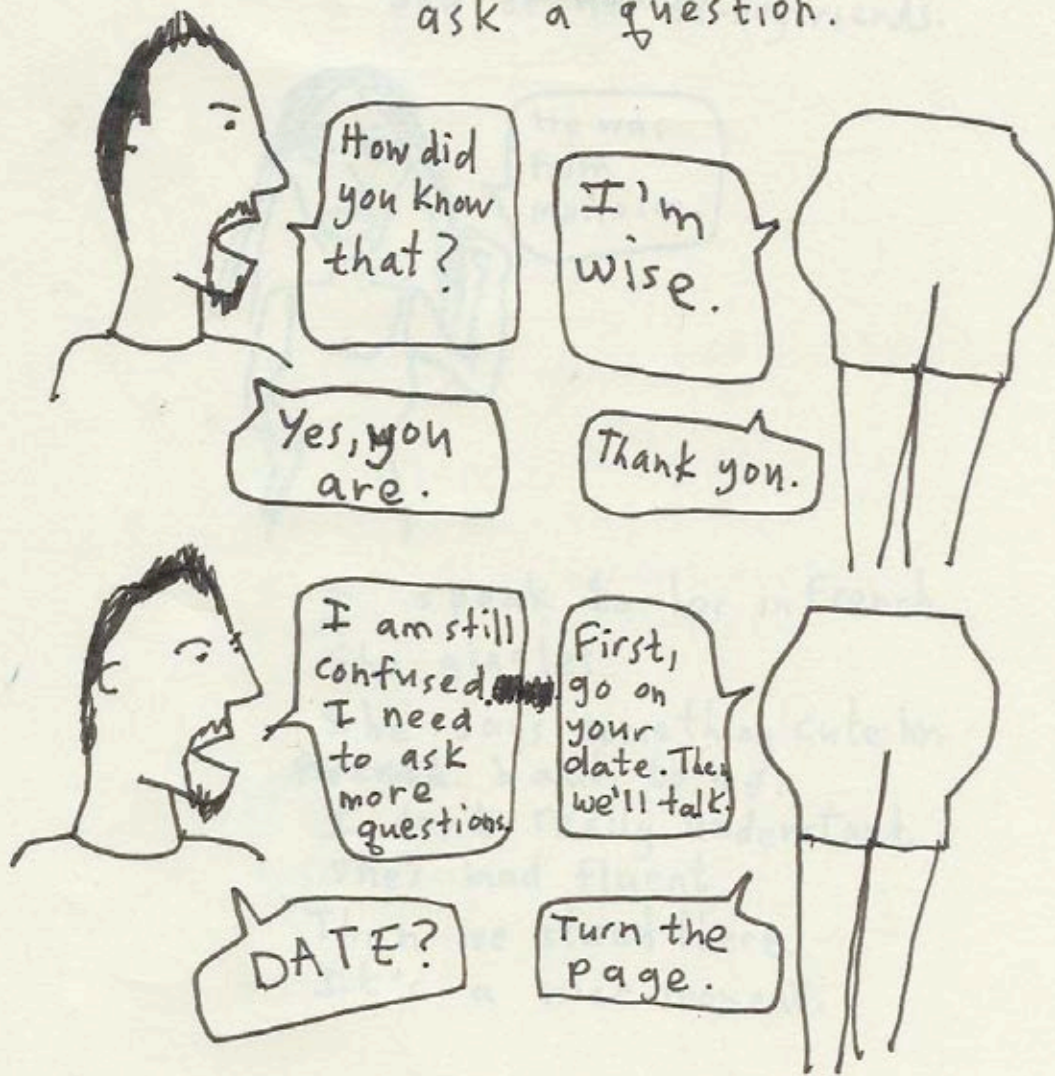 ask a question.
How did
you know
that?
I'm
wise.
Yes, you
are.
Thank you.
I am still
confused.
I need
to ask
more
questions.
First,
go on
your
date. Then
we'll talk.
DATE?
Turn the
page.